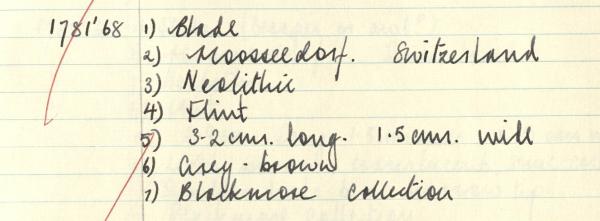 1781'68 1) Blade
2) Moosseedorf. Switzerland
3) Neolithic
4) Flint
5) 3.2cms. long. 1.5cms. wide
6) Grey-brown
7) Blackmore collection